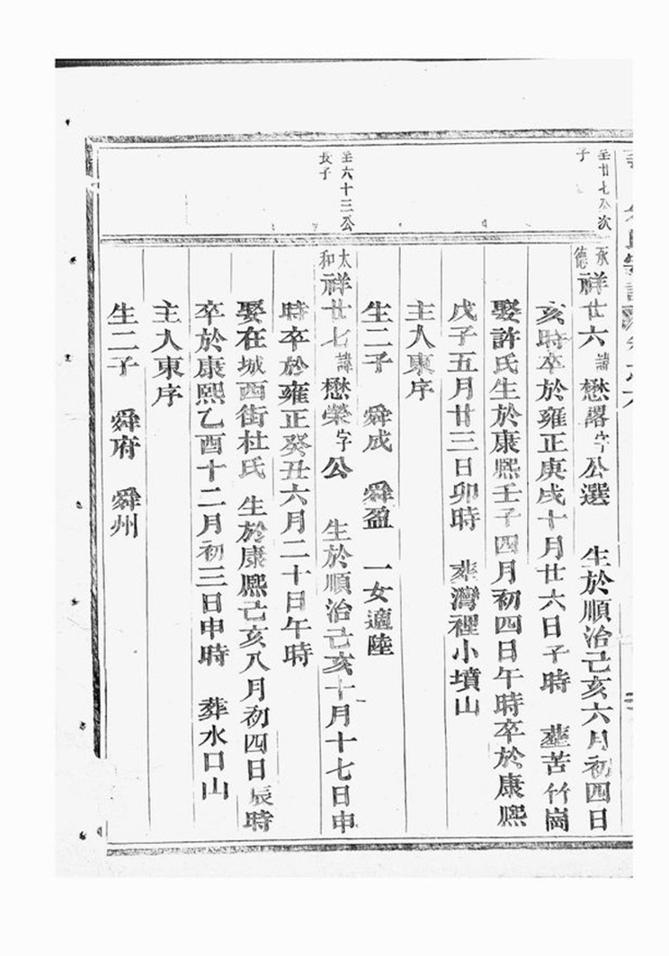 至廿七公次
子
承
德
祥廿六 諱 懋畧 字 公選 生於順治己亥六月初四日
亥時卒於雍正庚戌十月廿六日子時 塟苦竹崗
娶許氏生於康熈壬子四月初四日午時卒於康熈
戊子五月廿三日卯時 塟灣裡小墳山
主人東序
生二子 舜成 舜盈 一女適陸
至六十三公
長子
太
和
祥廿七 諱 懋榮 字 公 生於順治己亥十月十七日申
時卒於雍正癸丑六月二十日午時
娶在城西街杜氏 生於康熈己亥八月初四日辰時
卒於康熙乙酉十二月初三日申時 葬水口山
主人東序
生二子 舜府 舜州